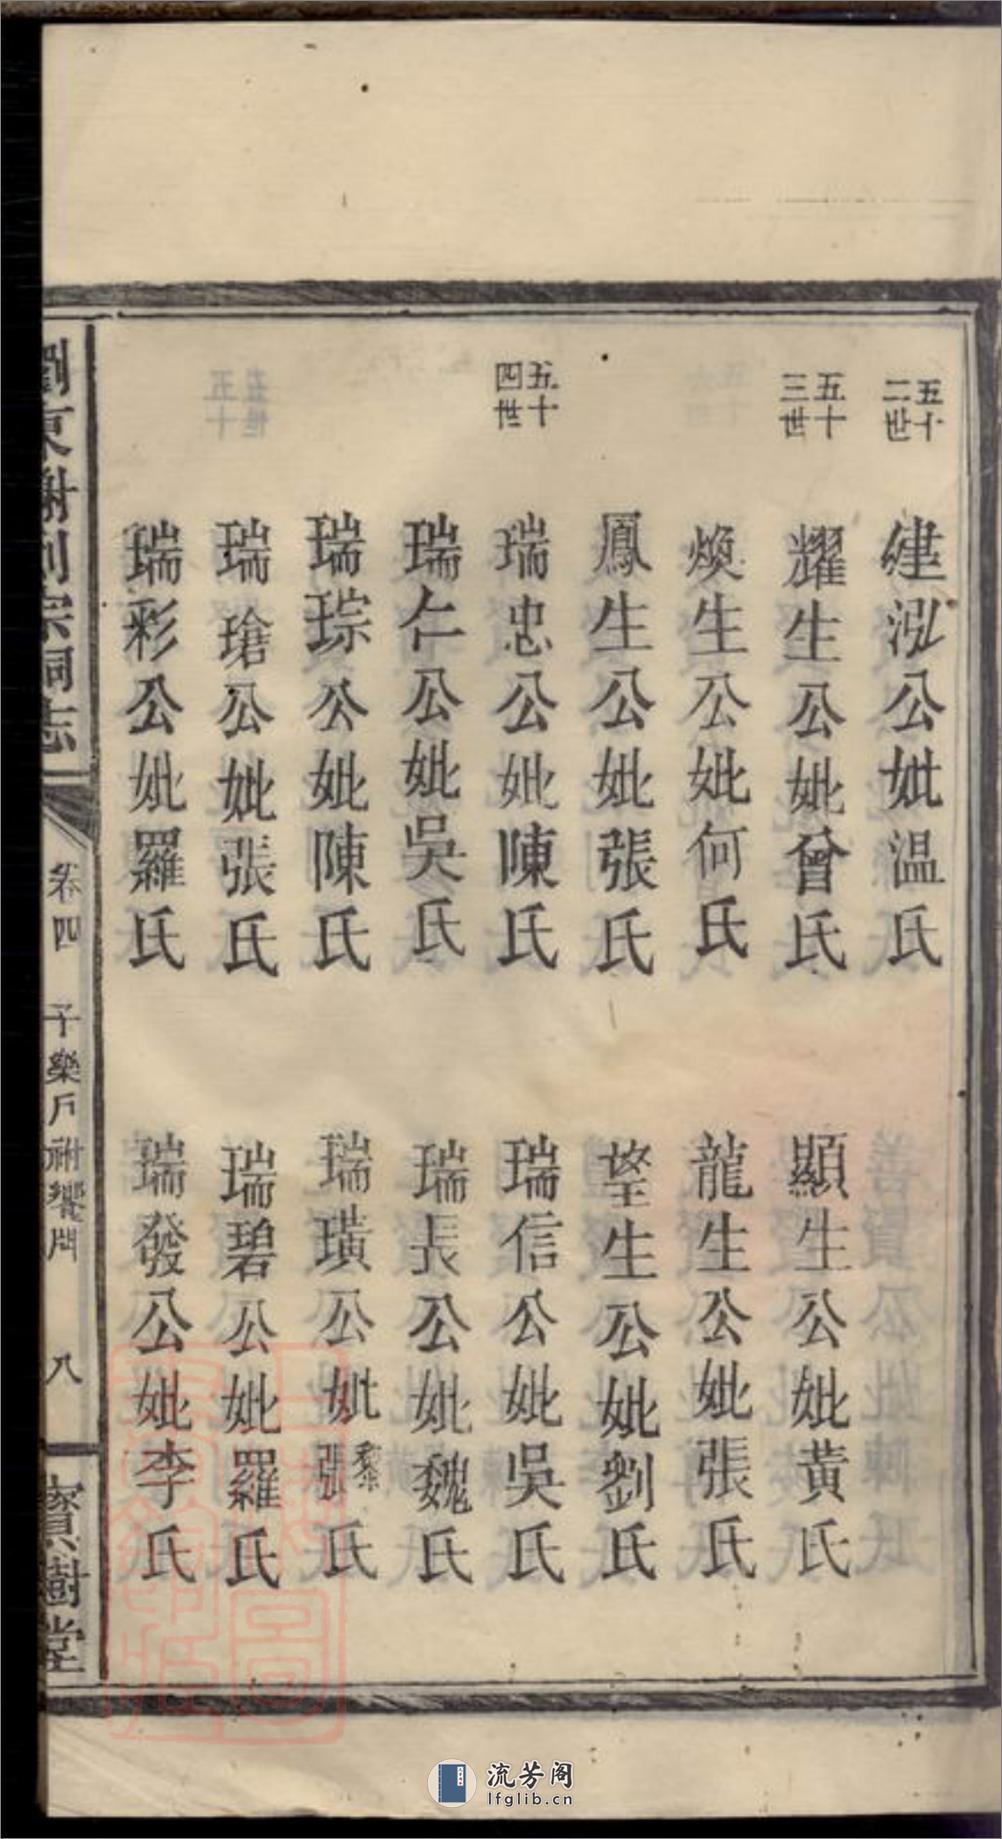 五十二世
建泓公妣温氏
五十三世
耀生公妣曾氏
顯生公妣黄氏
煥生公妣何氏
龍生公妣張氏
鳳生公妣張氏
塋生公妣劉氏
五十四世
瑞忠公妣陳氏
瑞信公妣吳氏
瑞仁公妣吳氏
瑞長公妣魏氏
瑞琮公妣陳氏
瑞璜公妣黎張氏
瑞瑲公妣張氏
瑞碧公妣羅氏
瑞彩公妣羅氏
瑞發公妣李氏
瀏東謝列宗祠志
卷四
子樂户祔饗牌
八
寳樹堂
流芳阁
lfglib.cn